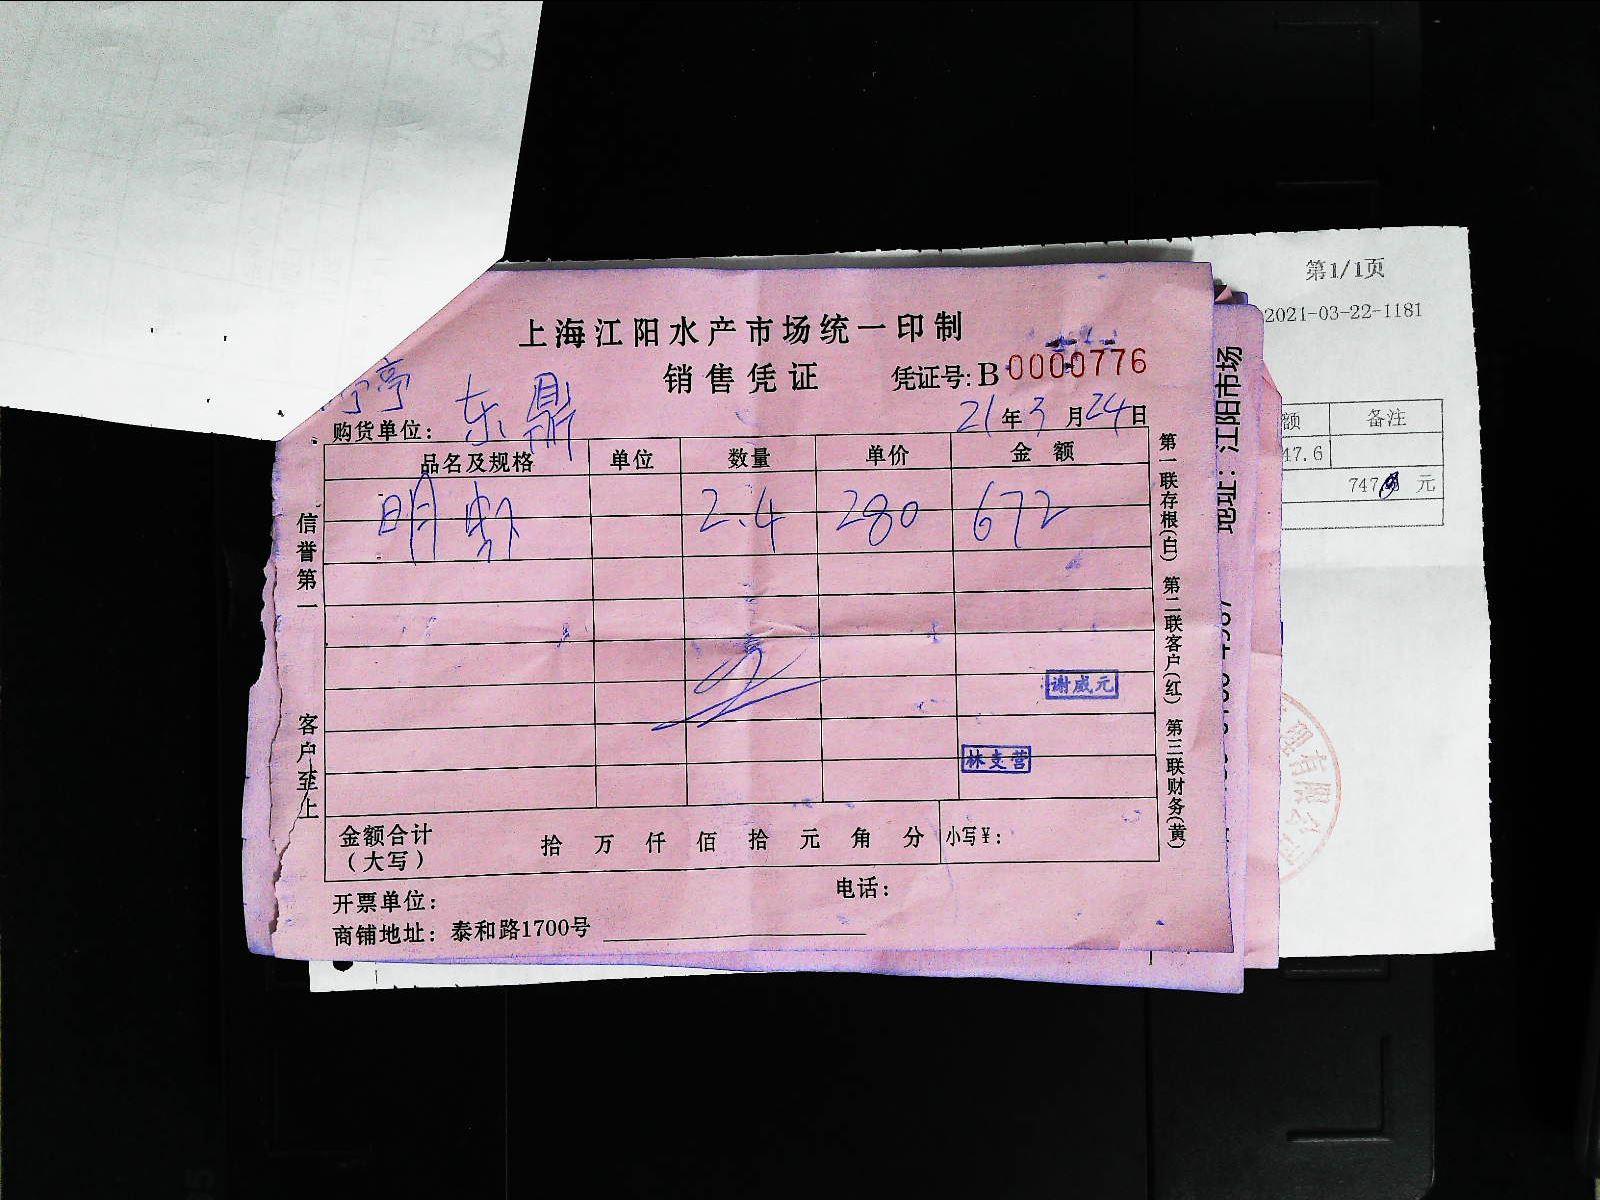 第1/1页
2021-03-22-1181
额 备注
47.6
747 元
地址：江阳市场
上海江阳水产市场统一印制
销售凭证 凭证号: B 0000776
亭
购货单位： 东鼎 21年3月24日
品名及规格 单位 数量 单价 金额
明虾 2.4 280 672
谢威元
林支营
金额合计（大写） 拾 万 仟 佰 拾 元 角 分 小写¥：
开票单位： 电话：
商铺地址：泰和路1700号
信誉第一 客户至上
第一联存根(白) 第二联客户(红) 第三联财务(黄)
理有限公司